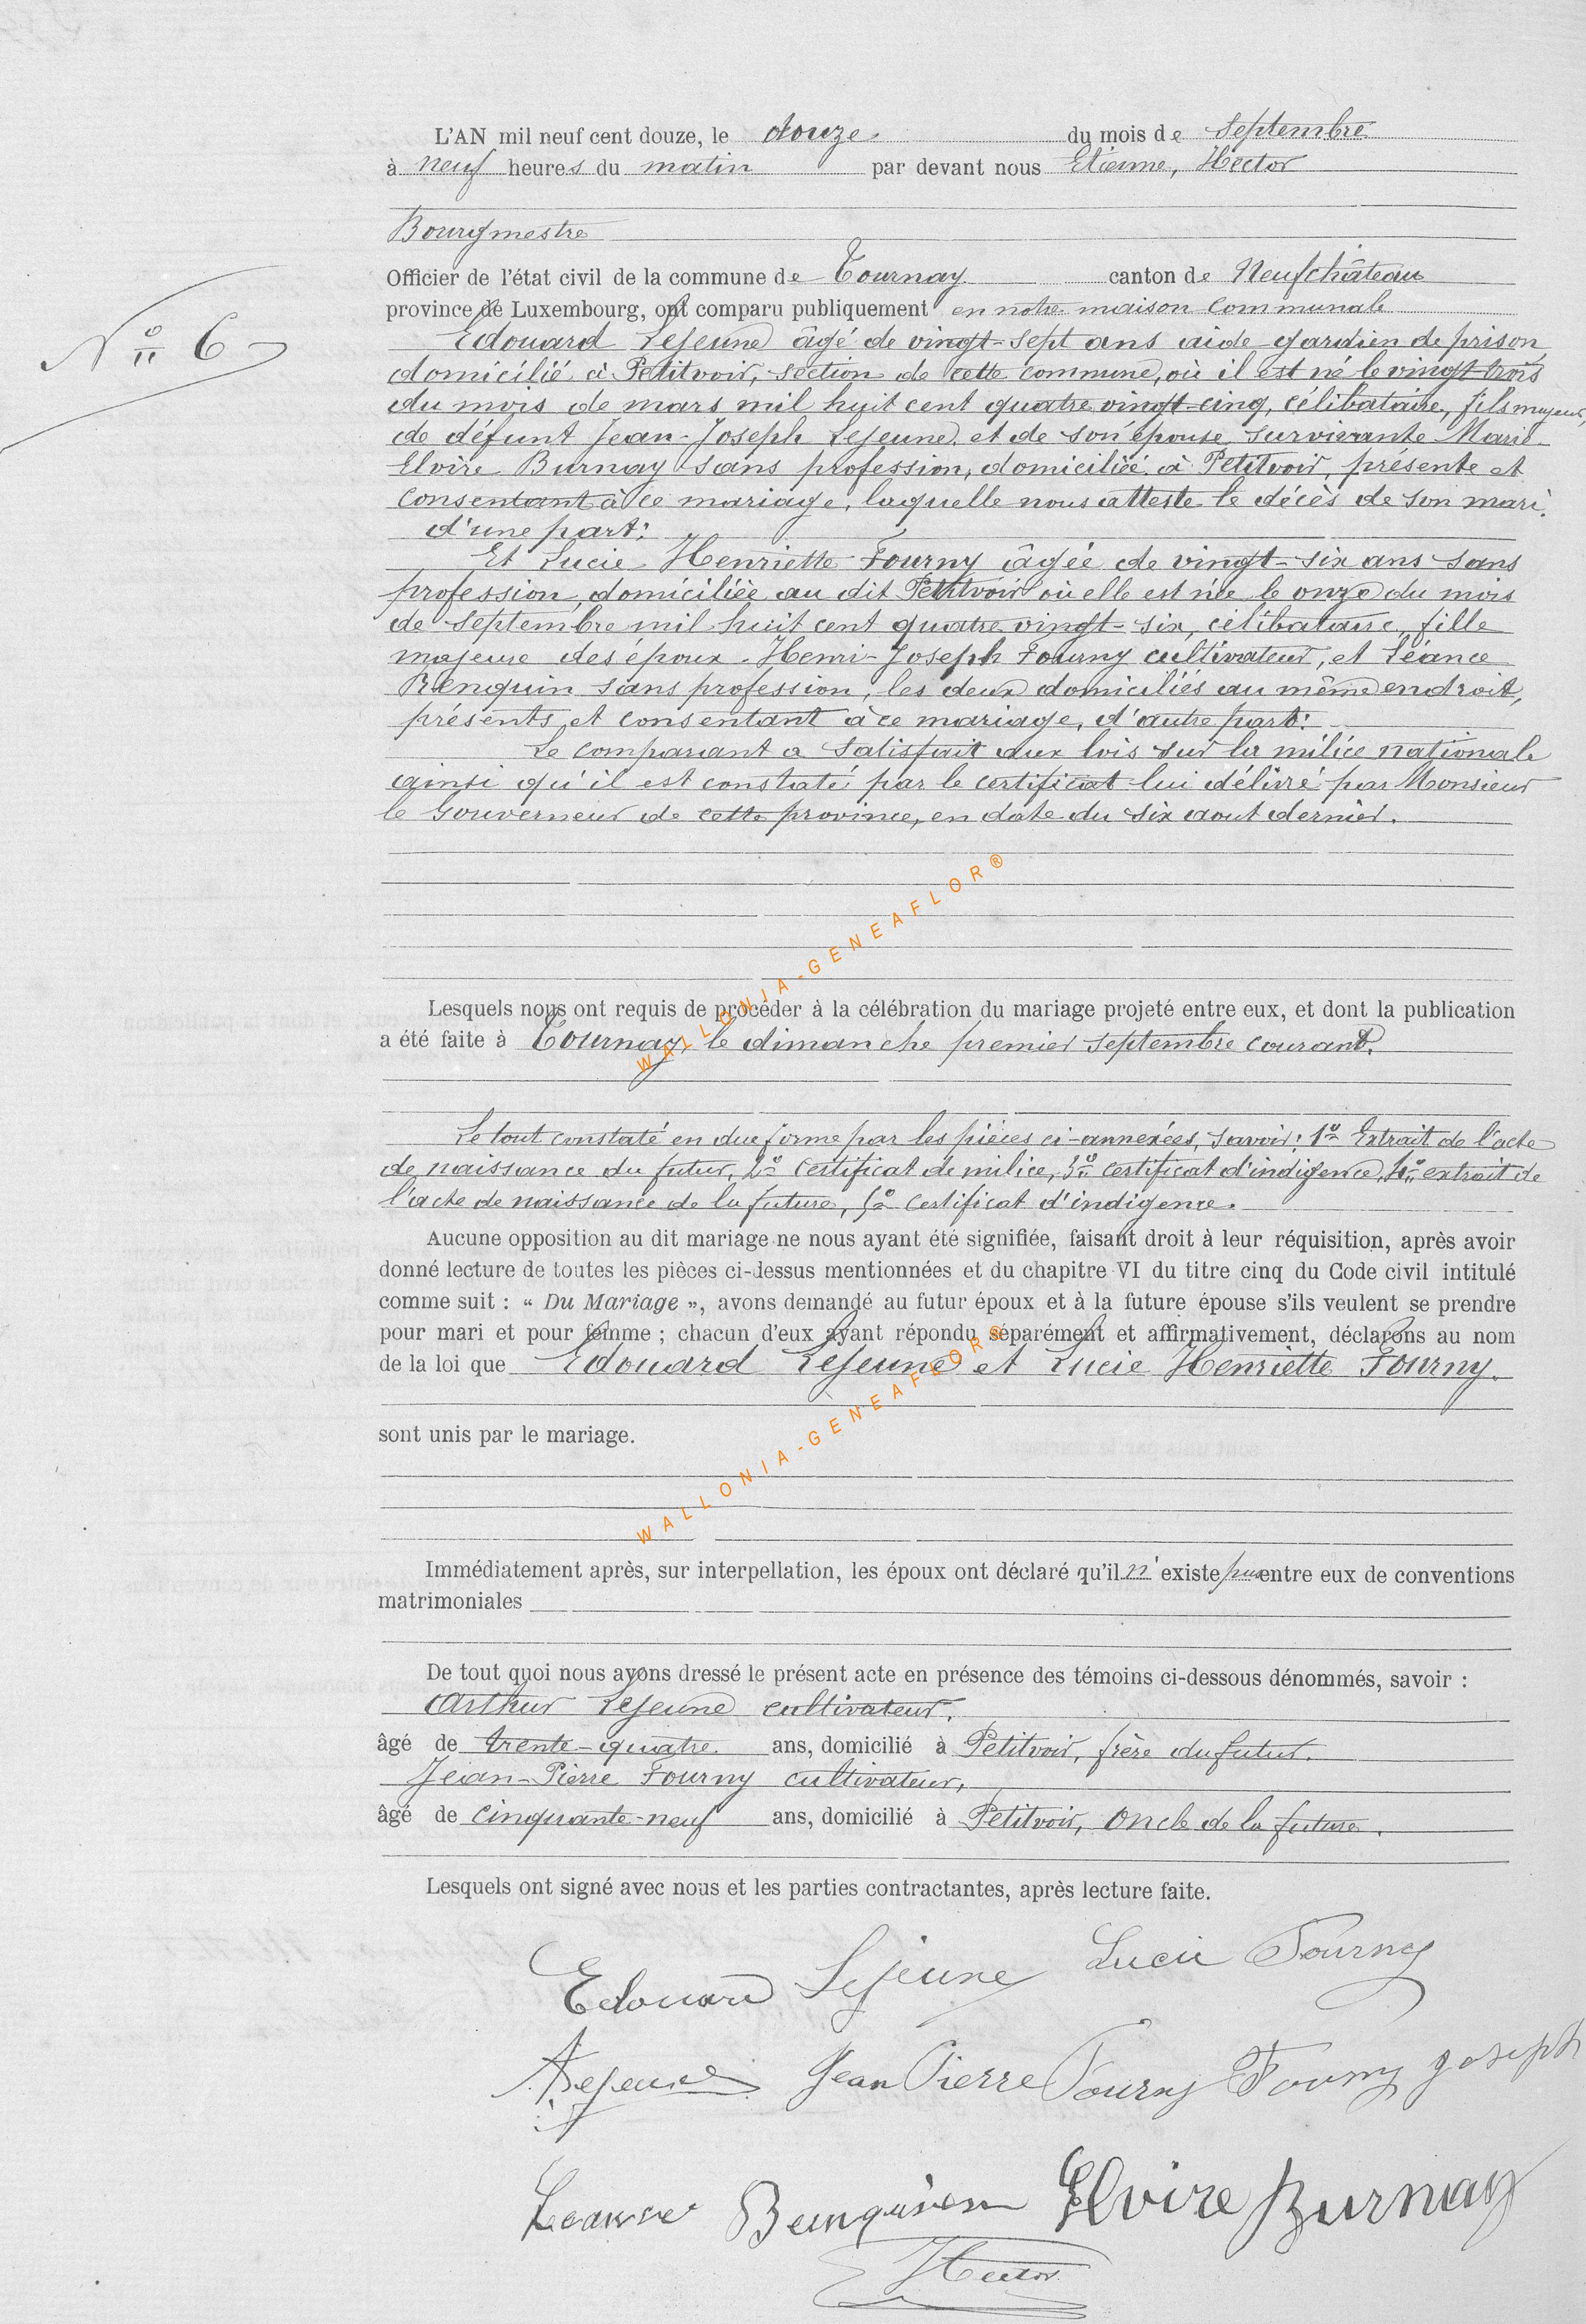 L'AN mil neuf cent douze, le douze du mois de Septembre
à neuf heures du matin par devant nous Etienne, Hector
Bourgmestre
Officier de l'état civil de la commune de Tournay canton de Neufchâteau
province de Luxembourg, ont comparu publiquement en notre maison communale
N° 6
Edouard Lejeune âgé de vingt-sept ans aide gardien de prison
domicilié à Petitvoir, section de cette commune, où il est né le vingt-trois
du mois de mars mil huit cent quatre vingt-cinq, célibataire, fils majeur,
de défunt Jean-Joseph Lejeune et de son épouse survivante Marie-
Elvire Burnay sans profession, domiciliée à Petitvoir, présente et
consentant à ce mariage, laquelle nous atteste le décès de son mari.
d'une part:
Et Lucie Henriette Fourny âgée de vingt-six ans sans
profession, domiciliée au dit Petitvoir où elle est née le onze du mois
de Septembre mil huit cent quatre vingt-six, célibataire, fille
majeure des époux Henri-Joseph Fourny cultivateur, et Léance
Benquin sans profession, les deux domiciliés au même endroit,
présents et consentant à ce mariage, d'autre part:
Le comparant a satisfait aux lois sur la milice nationale
ainsi qu'il est constaté par le certificat lui délivré par Monsieur
le Gouverneur de cette province, en date du six aout dernier.
WALLONIA-GENEAFLOR®
Lesquels nous ont requis de procéder à la célébration du mariage projeté entre eux, et dont la publication
a été faite à Tournay, le dimanche premier septembre courant.
Le tout constaté en due forme par les pièces ci-annexées, savoir: 1° Extrait de l'acte
de naissance du futur, 2° Certificat de milice, 3° certificat d'indigence, 4° extrait de
l'acte de naissance de la future, 5° Certificat d'indigence.
Aucune opposition au dit mariage ne nous ayant été signifiée, faisant droit à leur réquisition, après avoir
donné lecture de toutes les pièces ci-dessus mentionnées et du chapitre VI du titre cinq du Code civil intitulé
comme suit : « Du Mariage », avons demandé au futur époux et à la future épouse s'ils veulent se prendre
pour mari et pour femme ; chacun d'eux ayant répondu séparément et affirmativement, déclarons au nom
de la loi que Edouard Lejeune et Lucie Henriette Fourny.
sont unis par le mariage.
WALLONIA-GENEAFLOR®
Immédiatement après, sur interpellation, les époux ont déclaré qu'il n'existe pas entre eux de conventions
matrimoniales
De tout quoi nous ayons dressé le présent acte en présence des témoins ci-dessous dénommés, savoir :
Arthur Lejeune cultivateur.
âgé de trente-quatre ans, domicilié à Petitvoir, frère du futur.
Jean-Pierre Fourny cultivateur,
âgé de cinquante-neuf ans, domicilié à Petitvoir, Oncle de la future.
Lesquels ont signé avec nous et les parties contractantes, après lecture faite.
Edouard Lejeune Lucie Fourny
A Lejeune Jean Pierre Fourny Fourny Joseph
Leance Benquin Elvire Burnay
Hector